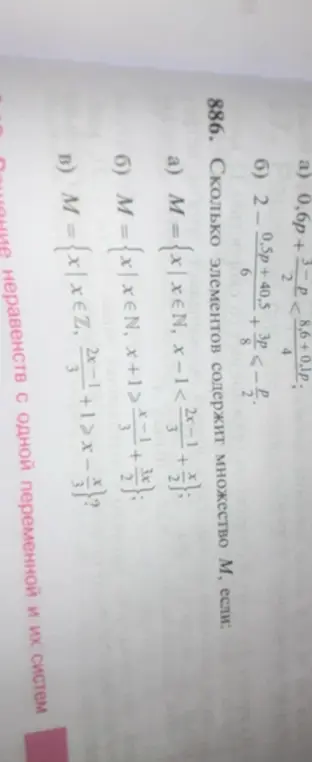 а) 0,6p + \frac{3 − p}{2} < \frac{8,6 + 0,1p}{4};
б) 2 − \frac{0,5p + 40,5}{6} + \frac{3p}{8} < −\frac{p}{2}.
886. Сколько элементов содержит множество M, если:
а) M = {x | x ∈ N, x − 1 < \frac{2x − 1}{3} + \frac{x}{2}};
б) M = {x | x ∈ N, x + 1 ⩾ \frac{x − 1}{3} + \frac{3x}{2}};
в) M = {x | x ∈ Z, \frac{2x − 1}{3} + 1 ⩾ x − \frac{x}{3}}?
неравенств с одной переменной и их систем